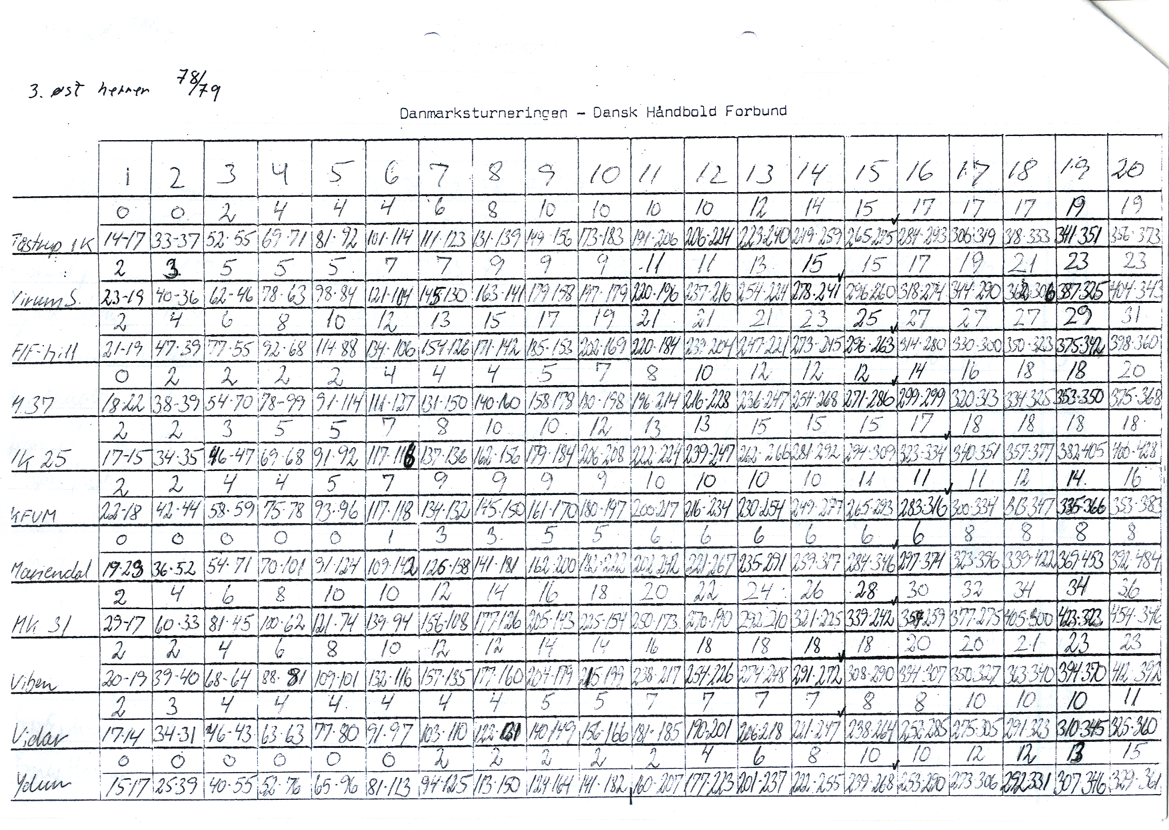 3. øst herrer 78/79
Danmarksturneringen - Dansk Håndbold Forbund
1 2 3 4 5 6 7 8 9 10 11 12 13 14 15 16 17 18 19 20
0 0 2 4 4 4 6 8 10 10 10 10 12 14 15 17 17 17 19 19
14-17 33-37 52-55 69-71 81-92 101-114 111-123 131-139 149-156 173-183 191-206 206-224 223-240 249-259 265-275 284-293 306-319 318-333 341-351 356-373
2 3 5 5 5 7 7 9 9 9 11 11 13 15 15 17 19 21 23 23
Virum S. 23-19 40-36 62-46 78-63 98-84 121-104 145-130 163-141 179-158 197-179 220-196 237-216 254-224 278-241 296-260 318-274 344-290 362-306 387-325 404-343
2 4 6 8 10 12 13 15 17 19 21 21 21 23 25 27 27 27 29 31
21-19 47-39 77-55 92-68 114-88 134-106 154-126 171-142 185-153 202-169 220-184 239-204 247-221 273-245 296-263 314-280 330-300 350-323 375-342 398-360
0 2 2 2 2 4 4 4 5 7 8 10 12 12 12 14 16 18 18 20
H 37 18-22 38-39 54-70 78-99 91-114 111-127 131-150 140-160 158-179 180-198 196-214 216-228 236-247 254-268 271-286 299-299 320-313 334-325 353-350 375-368
2 2 3 5 5 7 8 10 10 12 13 13 15 15 15 17 18 18 18 18
IK 25 17-15 34-35 46-47 69-68 91-92 117-116 137-136 162-156 179-184 206-208 222-224 239-247 262-266 281-292 294-309 323-334 340-351 357-377 382-405 400-428
2 2 4 4 5 7 9 9 9 9 10 10 10 10 11 11 11 12 14 16
KFUM 22-18 42-44 58-59 75-78 93-96 117-118 134-132 145-150 161-170 180-197 200-217 216-234 230-254 249-277 265-293 283-316 300-334 313-347 335-366 353-383
0 0 0 0 0 1 3 3 5 5 5 6 6 6 6 6 8 8 8 8
Mariendal 19-23 36-52 54-71 70-101 91-124 109-142 126-158 141-181 162-200 182-222 202-242 221-267 235-291 259-317 284-346 297-374 323-396 339-422 369-453 392-484
2 4 6 8 10 10 12 14 16 18 20 22 24 26 28 30 32 34 34 36
MK 31 29-17 60-33 81-45 100-62 121-74 139-94 156-108 177-126 205-143 225-154 250-173 270-190 292-210 321-225 339-242 354-259 377-275 405-300 423-323 454-346
2 2 4 6 8 10 12 12 14 14 16 18 18 18 18 20 20 21 23 23
Viben 20-19 39-40 68-64 88-81 109-101 132-116 157-135 177-160 204-179 215-199 238-217 254-226 274-248 291-272 308-290 334-307 350-327 363-340 394-370 412-392
2 3 4 4 4 4 4 4 5 5 7 7 7 7 8 8 10 10 10 11
Vidar 17-14 34-31 46-43 63-63 77-80 91-97 103-110 122-131 140-149 156-166 181-185 190-201 206-218 221-247 238-264 252-285 275-305 291-323 310-345 325-360
0 0 0 0 0 0 2 2 2 2 2 4 6 8 10 10 12 12 13 15
Ydun 15-17 25-39 40-55 52-76 65-96 81-113 94-125 113-150 129-164 141-182 160-207 177-223 201-237 222-255 239-268 253-290 273-306 292-331 307-346 329-361